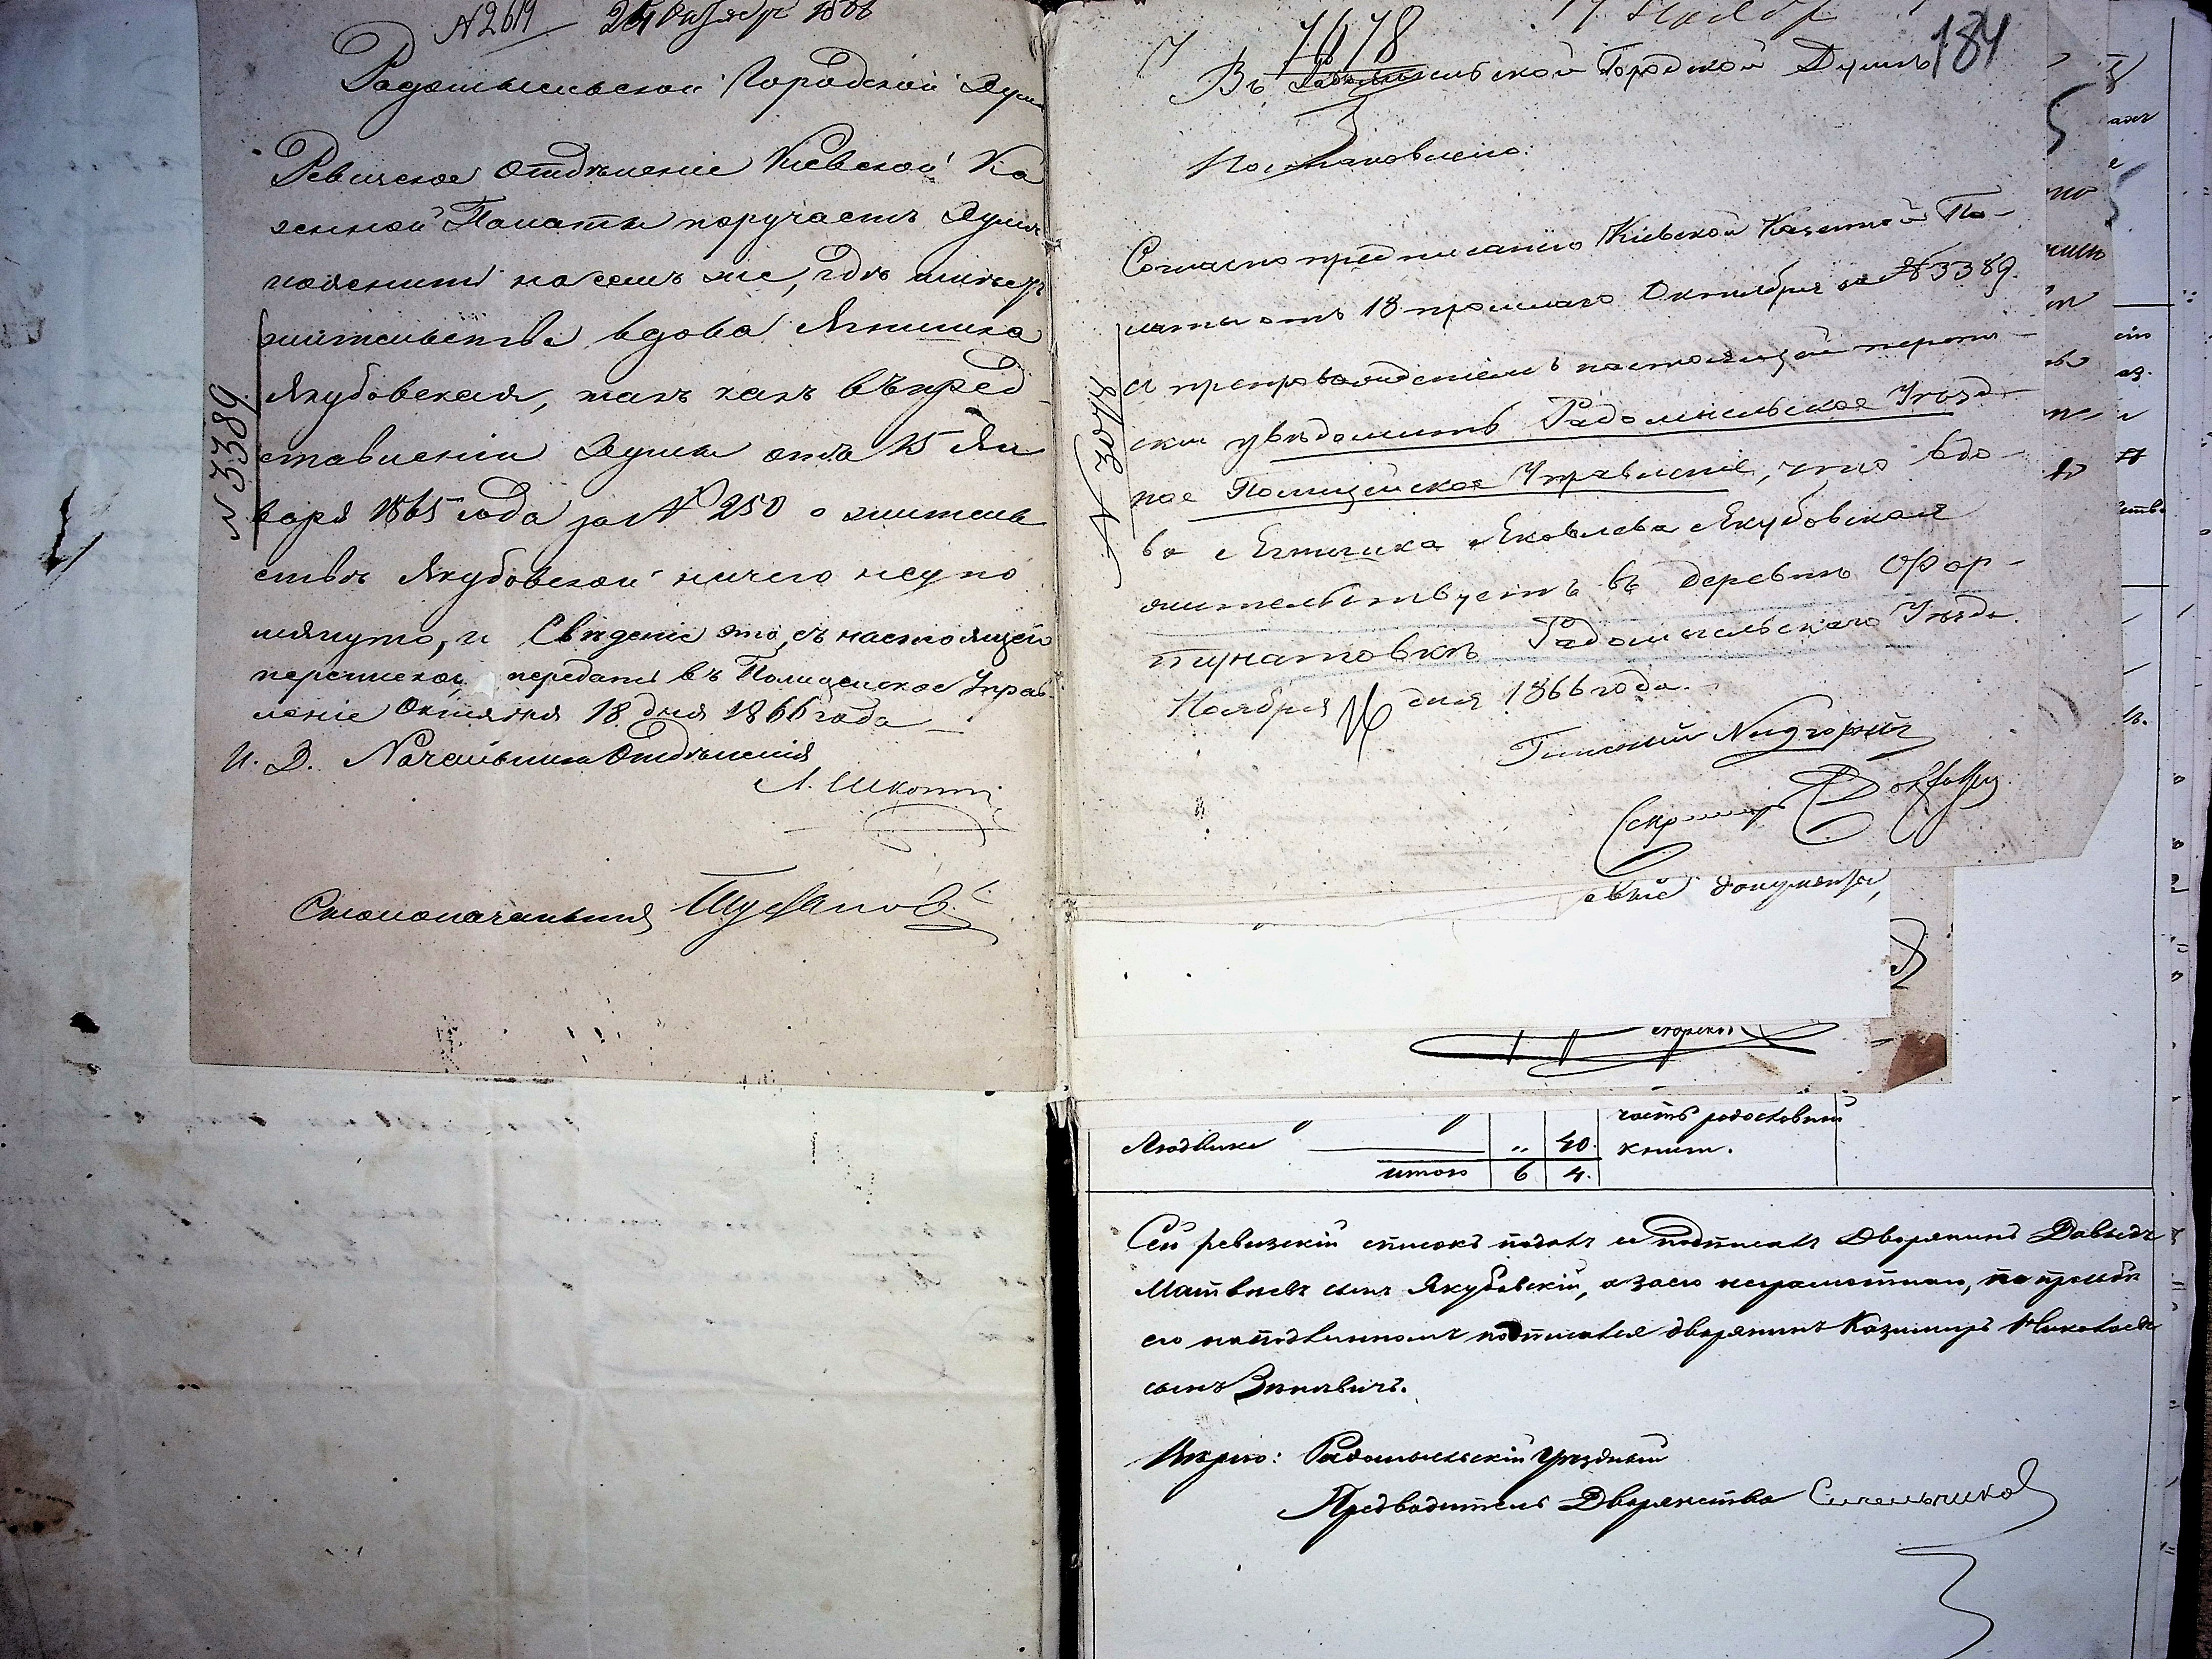 N 2619 24 Октября 1866
Радомысльской Городской Думѣ
Ревизское Отдѣленіе Кіевской Ка
зенной Палаты поручаетъ Думѣ
пояснить на семъ же, гдѣ имѣетъ
жительство вдова Ягнишка
Якубовская, такъ какъ въ пред
ставленіи Думы отъ 15 Ян
варя 1865 года за N 250 о житель
ствѣ Якубовской ничего неупо
мянуто, и Свѣденіе это, съ настоящею
перепискою, передать въ Полицейское Управ
леніе Октября 18 дня 1866 года
И. Д. Начальника Отдѣленія
Столоначальникъ
N 3389
7678
184
Въ Радомысльской Городской Думѣ
Постановлено:
Согласно предписанію Кіевской Казенной Па-
латы отъ 18 прошлаго Октября за N 3389.
съ препровожденіемъ настоящей перепи-
ски увѣдомить Радомысльское Уѣзд-
ное Полицейское Управленіе, что вдо-
ва Ягнишка Яковлева Якубовская
жительствуетъ въ деревнѣ Фор-
тунатовкѣ Радомысльскаго Уѣзда.
Ноября 16 дня 1866 года.
Гласный
Секретарь
документы,
часть родословной
Людвика „ 40. книги.
итого 6 4.
Сей ревизскій списокъ подалъ и подписалъ Дворянинъ Давыдъ
Матвѣевъ сынъ Якубовскій, а за его неграмотною, по прозьбѣ
его на подлинномъ подписался дворянинъ Казимиръ Николаевъ
сынъ
Вѣрно: Радомысльскій Уѣздный
Предводитель Дворянства